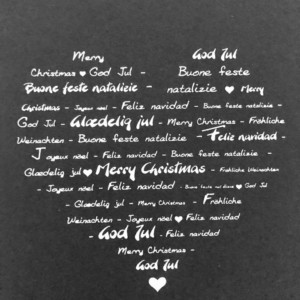 Merry God Jul
Christmas ♥ God Jul - Buone feste
Buone feste natalizie - natalizie ♥ Merry
Christmas - Joyeux noel - Feliz navidad - Buone feste natalizie -
God Jul - Glædelig jul - Merry Christmas - Fröhliche
Weinachten - Buone feste natalizie - Feliz navidad -
Joyeux noel - Feliz navidad - Buone feste natalizie -
Glædelig jul ♥ Merry Christmas - Fröhliche Weinachten
- Joyeux noel - Feliz navidad - Buone feste natalizie ♥ God Jul
- Glædelig jul - Merry Christmas - Fröhliche
Weinachten - Joyeux noel ♥ Feliz navidad
- God Jul - Feliz navidad
Merry Christmas -
God Jul
♥